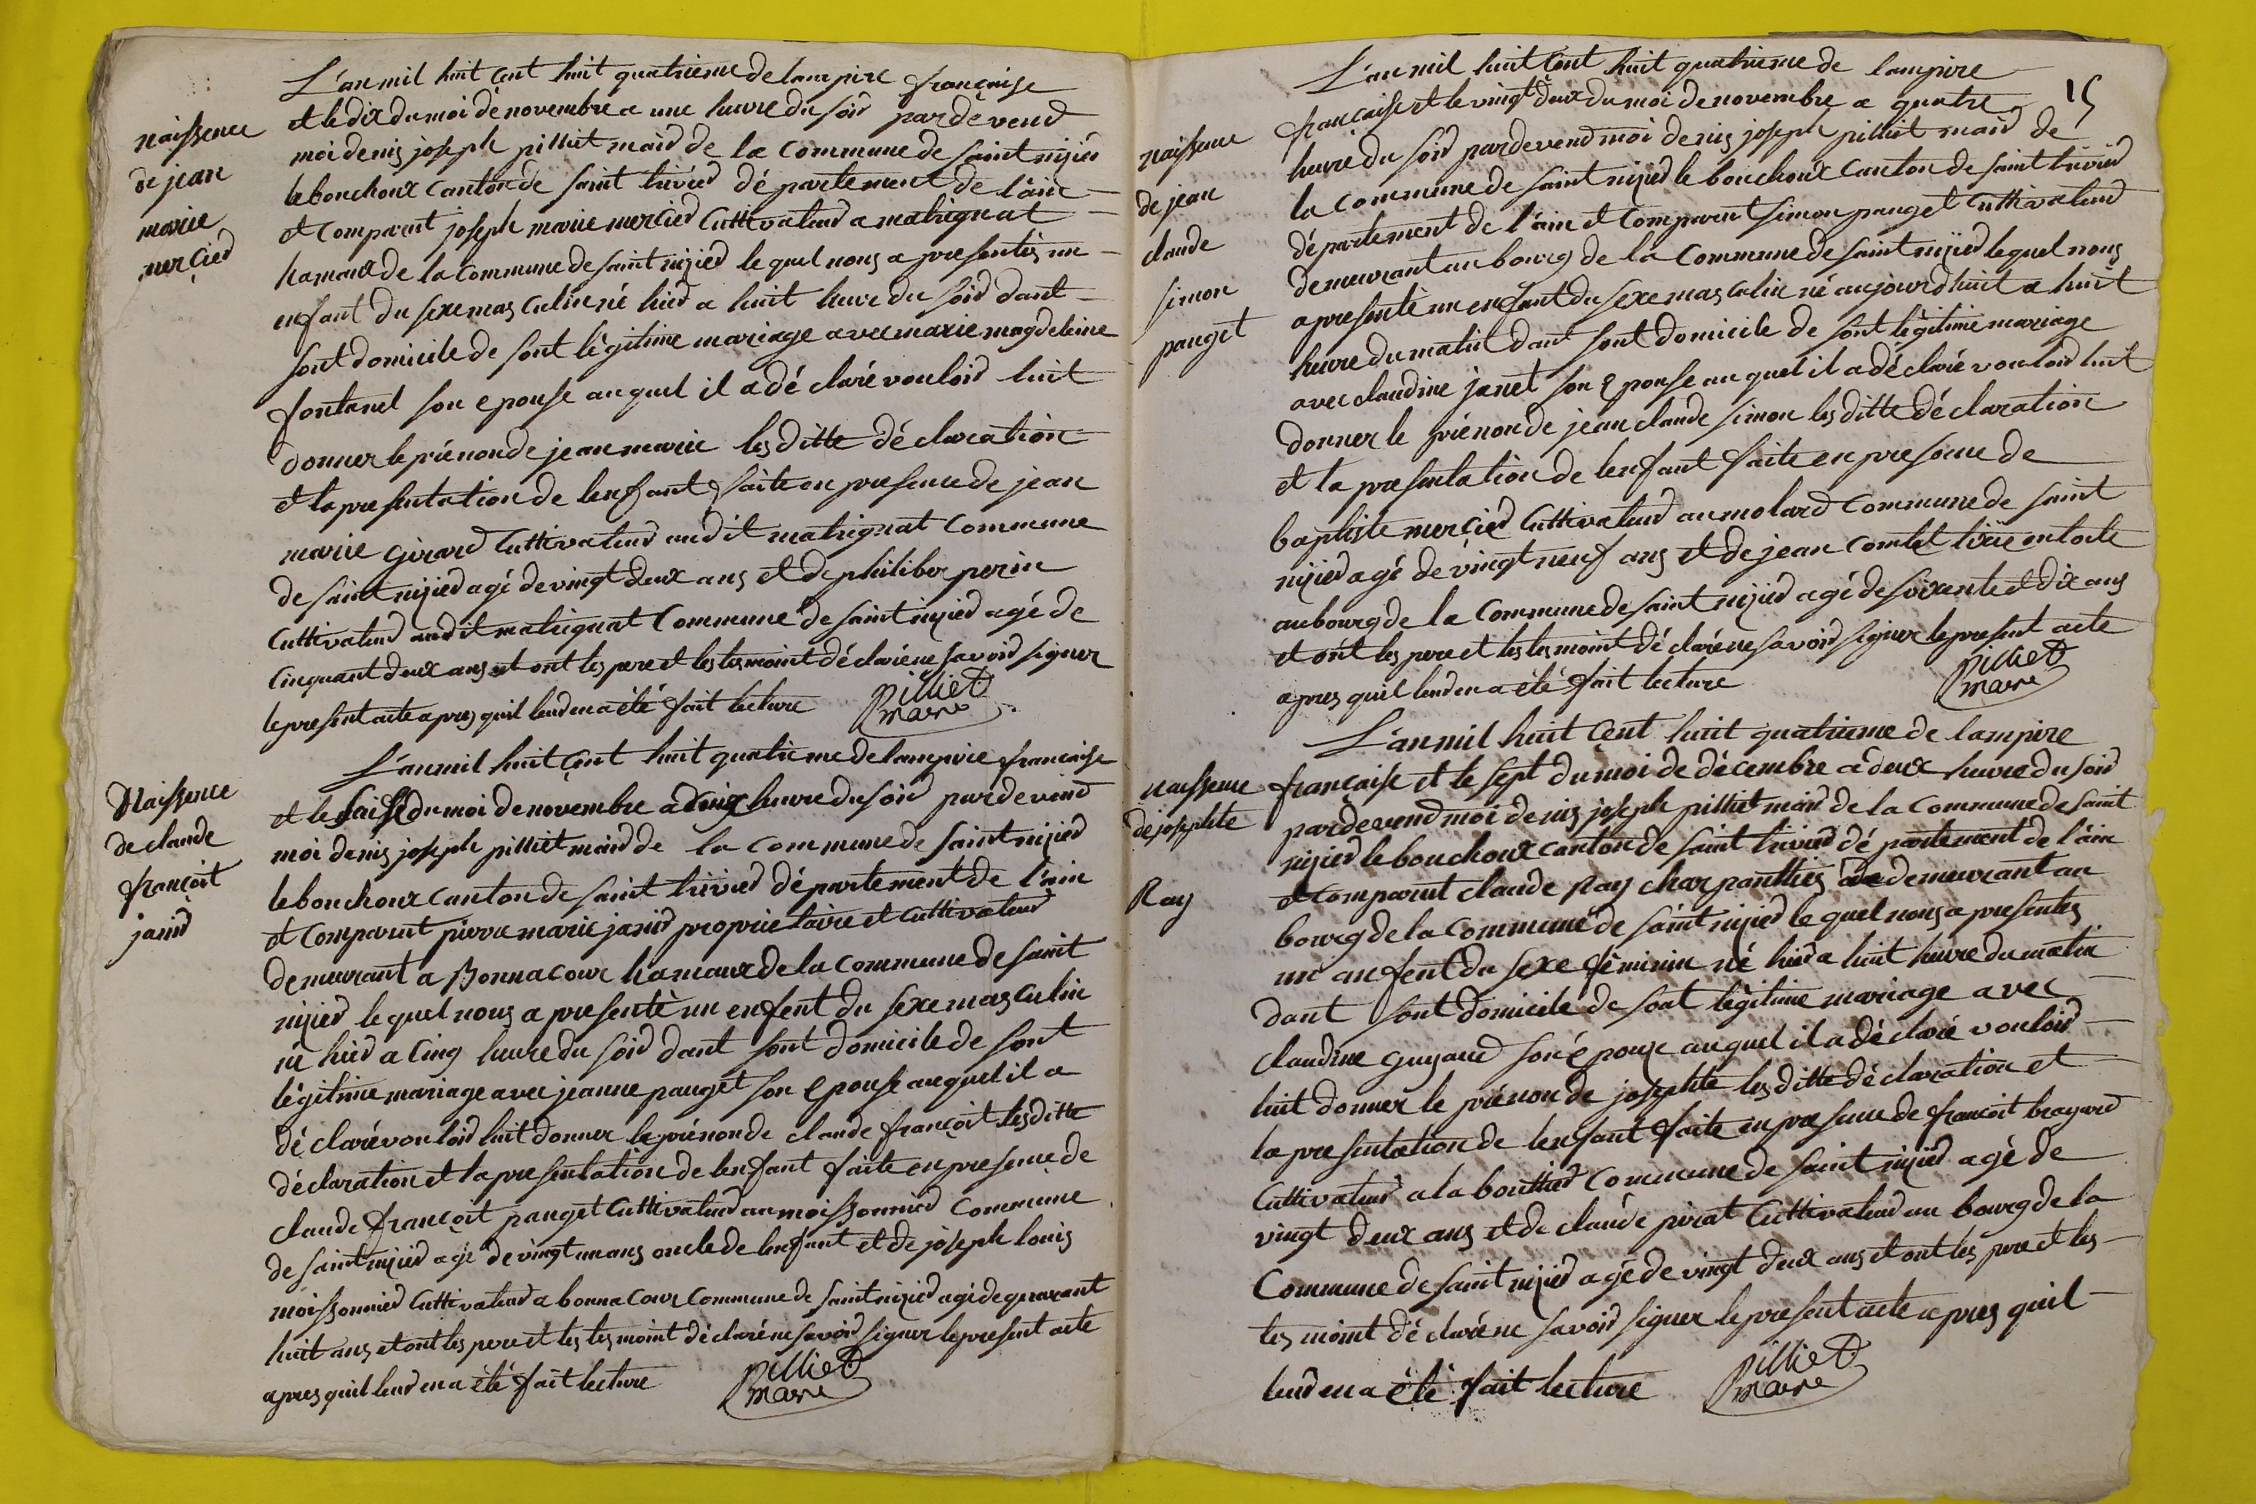 naissence
de jean
marie
mercied
L'an mil huit cent huit quatrieme de lampire française
et le dix du moi de novembre a une heure du soid pardevend
moi denis joseph pilliet maid de la Commune de saint nijied
le bouchoux canton de saint trivied département de l'ain
et comparut joseph marie mercied Cultivateud a matrignat
hamaux de la Commune de saint nijied le quel nous a presentés un
enfant du sexe mas culin né hied a huit heure du soid dant
sont domicile de sont légitime mariage avec marie magdeleine
fontanel son epouse au quel il a dé claré vouloid luit
donner le prénon de jean marie les ditte déclaration
et la presentation de lenfant faite en presence de jean
marie Girard Cultivateud audit matrignat Commune
de saint nijied agé de vingt deux ans et de philiber perin
Cultivateud audit matrignat Commune de saint nijied agé de
Cinquant deux ans et ont les pere et les tesmoint déclaré ne savoid signer
le present acte apres quil leud en a été fait lecture
Pilliet
maire
Naissence
de claude
françoit
janid
L'an mil huit çent huit quatrieme de lampire française
et le saise du moi de novembre a Cinq heure du soid pardevend
moi denis joseph pilliet maid de la Commune de saint nijied
le bouchoux canton de saint trivied département de l'ain
et Comparut pierre marie janid proprietaire et Cultivateud
demeurant a Bonnacour hamaux de la Commune de saint
nijied le quel nous a presenté un enfent du sexe mas culin
né hied a Cinq heure du soid dant sont domicile de sont
légitime mariage avec jeanne pauget son epouse au quel il a
dé claré vouloid luit donner le prénon de claude françoit les ditte
déclaration et la presentation de lenfant faite en presence de
claude françoit pauget Cultivateud au moissonnied Commune
de saint nijied agé de vingt un ans oncle de lenfant et de joseph louis
moissonnied Cultivateud a bonna Cour Commune de saint nijied agé de quarant
huit ans et ont les pere et les tesmoint déclaré ne savoid signer le present acte
apres quil leud en a été fait lecture
Pilliet
maire
15
naissence
de jean
claude
simon
pauget
L'an mil huit Cent huit quatrieme de lampire
française et le vingt deux du moi de novembre a quatre
heure du soid pardevend moi denis joseph pilliet maid de
la Commune de saint nijied le bouchoux Canton de saint trivied
département de l'ain et Comparut simon pauget Cultivateud
demeurant au bourg de la Commune de saint nijied lequel nous
a presenté un enfant du sexe mas culin né aujourdhuit a huit
heure du matin dant sont domicile de sont légitime mariage
avec claudine janet son epouse au quel il a déclaré vouloid luit
donner le prénon de jean claude simon les ditte déclaration
et la presentation de lenfant faite en presence de
baptiste mercied Cultivateud au molard Commune de saint
nijied agé de vingt neuf ans et de jean comtet
au bourg de la Commune de saint nijied agé de soixente et dix ans
et ont les pere et les tesmoint déclaré ne savoid signer le present acte
apres quil leud en a été fait lecture
Pilliet
maire
naissence
de josephte
Ray
L'an mil huit Cent huit quatrieme de lampire
française et le sept du moi de décembre a deux heure du soid
pardevend moi denis joseph pilliet maid de la Commune de saint
nijied le bouchoux canton de saint trivied département de l'ain
et Comparut claude Ray charpanthiés demeurant au
bourg de la Commune de saint nijied le quel nous a presentés
un anfent du sexe féminin né hied a huit heure du matin
dant sont domicile de sont légitime mariage avec
claudine guyaud son épouse auquel il a déclaré vouloid
luit donner le prénon de josephte les ditte déclaration et
la presentation de lenfant faite en presence de françoit brayard
Cultivateud a la bouttied Commune de saint nijied agé de
vingt deux ans et de claude pirat Cultivateud au bourg de la
Commune de saint nijied agé de vingt deux ans et ont les pere et les
tes moint dé claré ne savoid signer le present acte apres quil
leud en a été fait lecture
Pilliet
maire